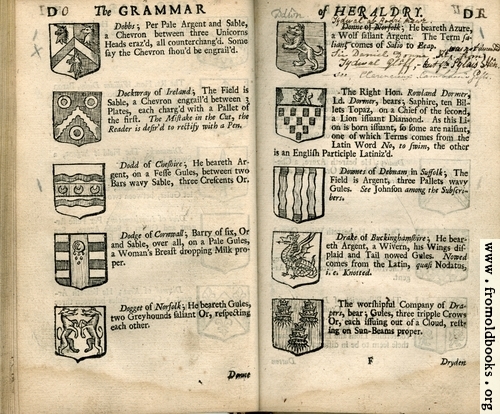 DO The GRAMMAR
Dobbs; Per Pale Argent and Sable,
a Chevron between three Unicorns
Heads eraz'd, all counterchang'd. Some
say the Chevron shou'd be engrail'd.
Dockwray of Ireland; The Field is
Sable, a Chevron engrail'd between 3
Plates, each charg'd with a Pallet of
the first. The Mistake in the Cut, the
Reader is desir'd to rectify with a Pen.
Dodd of Cheshire; He beareth Ar-
gent, on a Fesse Gules, between two
Bars wavy Sable, three Crescents Or.
Dodge of Cornwall; Barry of six, Or
and Sable, over all, on a Pale Gules,
a Woman's Breast dropping Milk pro-
per.
Dogget of Norfolk; He beareth Gules,
two Greyhounds saliant Or, respecting
each other.
Doune
of HERALDRY. DR
Doune of Norfolk; He beareth Azure,
a Wolf saliant Argent. The Term sa-
liant comes of Salio to Leap.
The Right Hon. Rowland Dormer,
Ld. Dormer, bears; Saphire, ten Bil-
lets Topaz, on a Chief of the second,
a Lion issuant Diamond. As this Li-
on is born issuant, so some are naisant,
one of which Terms comes from the
Latin Word No, to swim, the other
is an English Participle Latiniz'd.
Downes of Debnam in Suffolk; The
Field is Argent, three Pallets wavy
Gules. See Johnson among the Subscri-
bers.
Drake of Buckinghamshire; He bear-
eth Argent, a Wivern, his Wings dis-
plaid and Tail nowed Gules. Nowed
comes from the Latin, quasi Nodatus,
i. e. Knotted.
The worshipful Company of Dra-
pers, bear; Gules, three tripple Crows
Or, each issuing out of a Cloud, rest-
ing on Sun-Beams proper.
F Dryden
www.fromoldbooks.org